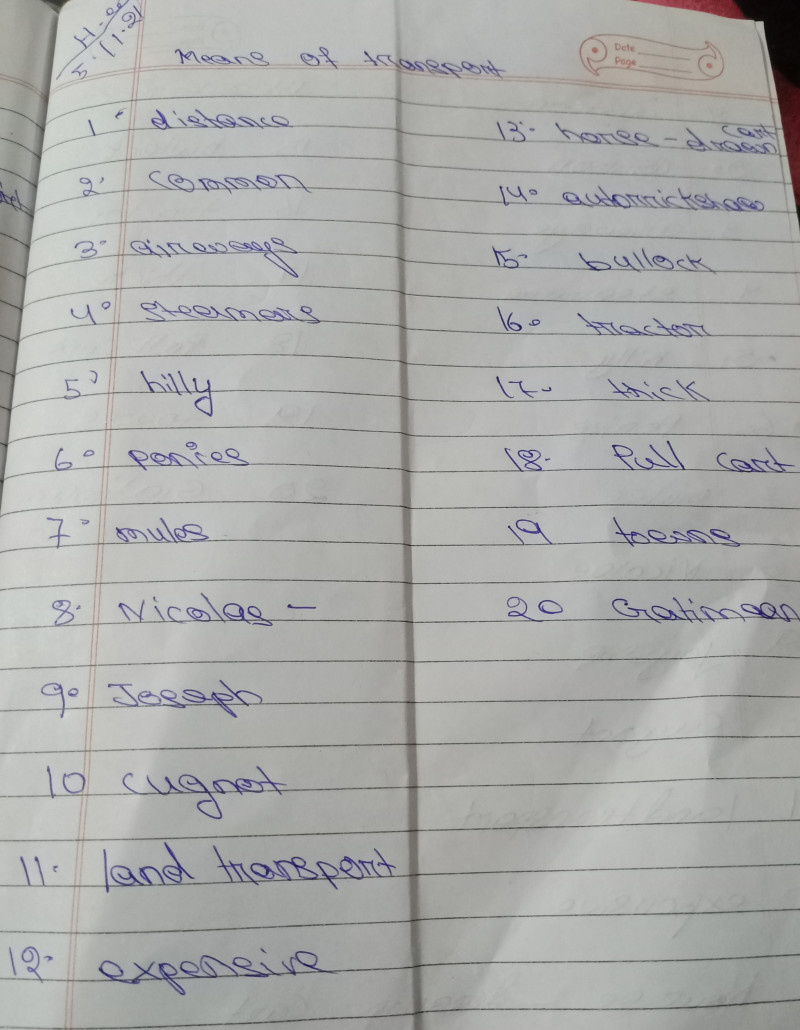 H.W
5.11.21
Means of transport
Date
Page
1. distance
2. common
3. airways
4. steamers
5. hilly
6. ponies
7. mules
8. Nicolas -
9. Joseph
10 cugnot
11. land transport
12. expensive
13. horse-drawn cart
14. autorrickshaw
15. bullock
16. tractor
17. thick
18. Pull cart
19
20 Gatimaan